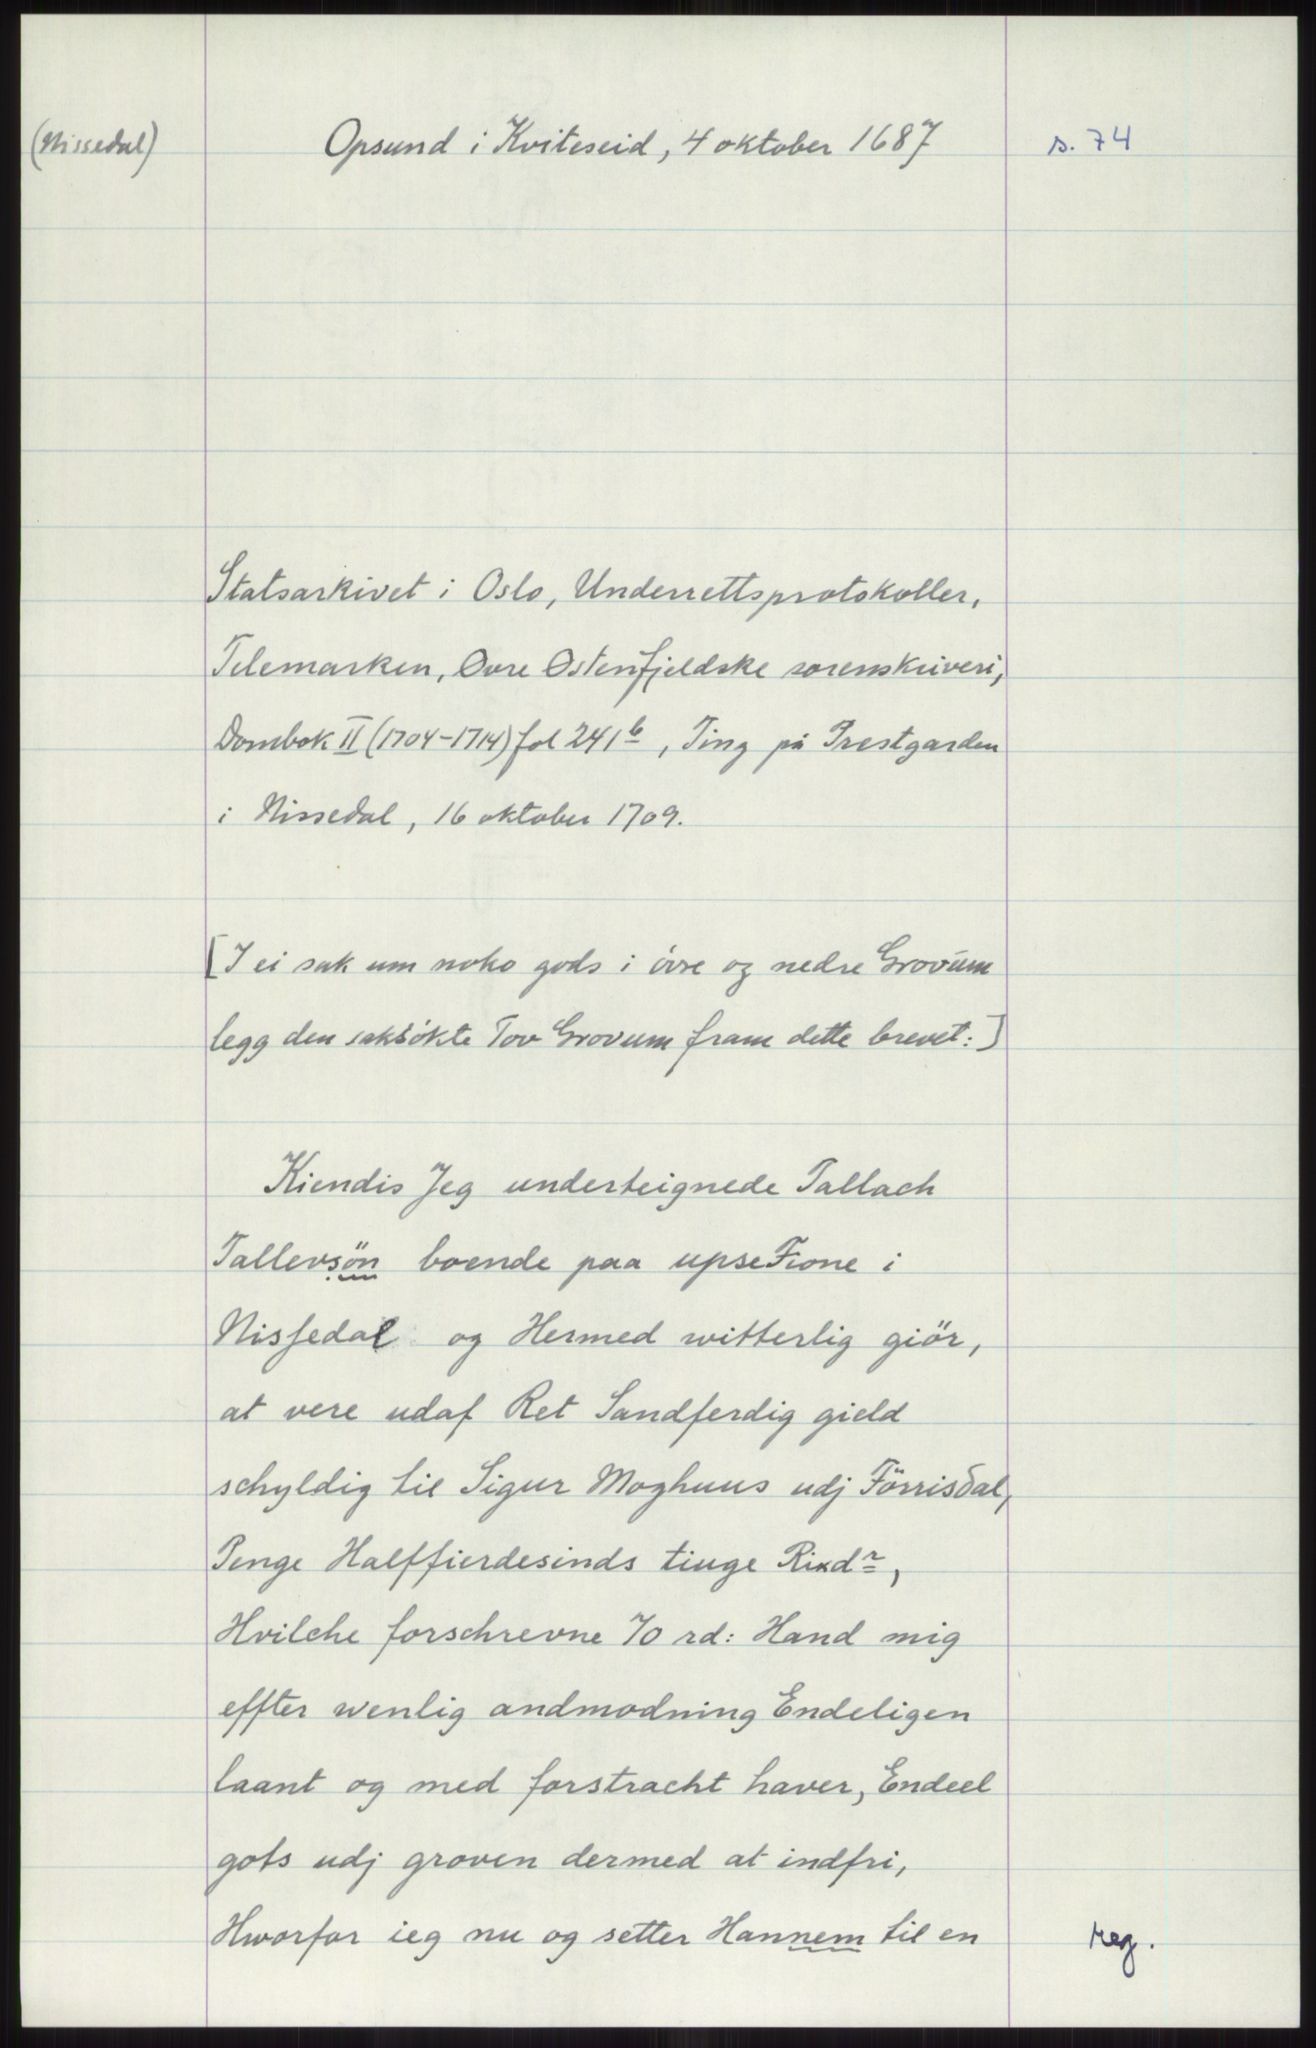 (Nissedal)
Opsund i Kviteseid, 4 oktober 1687
s. 74
Statsarkivet i Oslo, Underrettsprotokoller,
Telemarken, Øvre Østenfjeldske sorenskriveri,
Dombok II (1704-1714) fol 241 b, Ting på Prestgarden
i Nissedal, 16 oktober 1709.
[I ei sak um noko gods i övre og nedre Grovum
legg den saksökte Tov Grovum fram dette brevet:]
Kiendis Jeg underteignede Tallach
Tallevsön boende paa upse Fione i
Nisſedal og Hermed witterlig giör,
at vere udaf Ret Sandferdig gield
schyldig til Sigur Moghuus udj Förrisdal,
Penge Halffierdesinds tiuge Rixdr,
Hvilche forschrevne 70 rd: Hand mig
effter wenlig andmodning Endeligen
laant og med forstracht haver, Endeel
gots udj groven dermed at indfri,
Hworfor ieg nu og setter Hannem til en
reg.